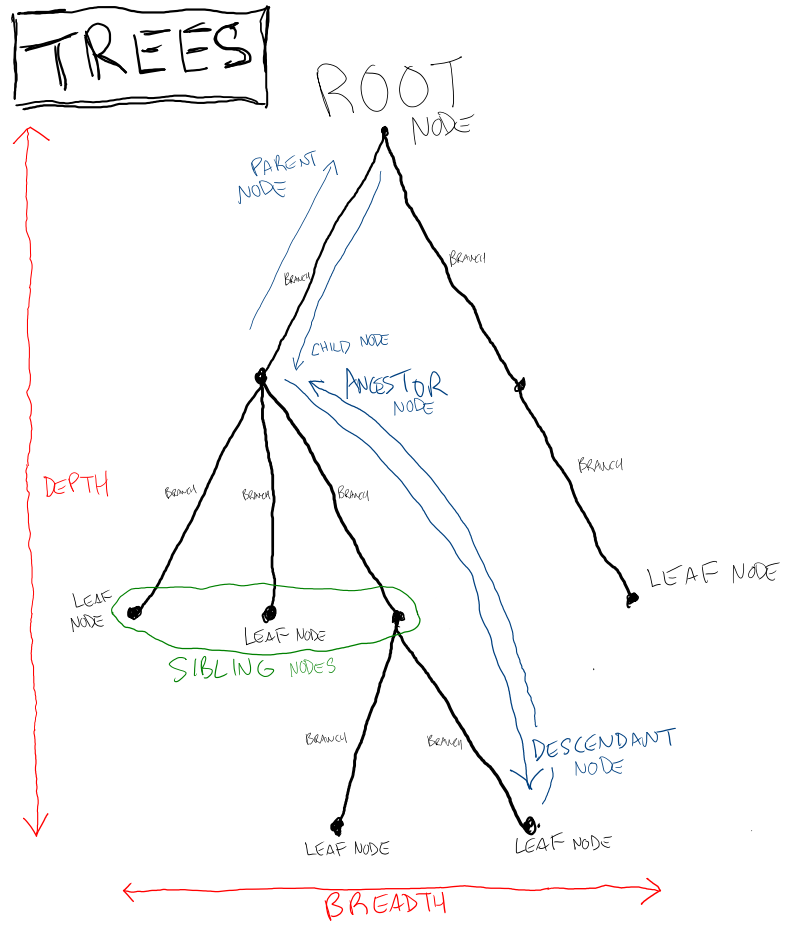 TREES
ROOT
NODE
PARENT
NODE
BRANCH
BRANCH
CHILD NODE
ANCESTOR
NODE
BRANCH
DEPTH
BRANCH
BRANCH
BRANCH
LEAF NODE
LEAF
NODE
LEAF NODE
SIBLING NODES
BRANCH
BRANCH
DESCENDANT
NODE
LEAF NODE
LEAF NODE
BREADTH